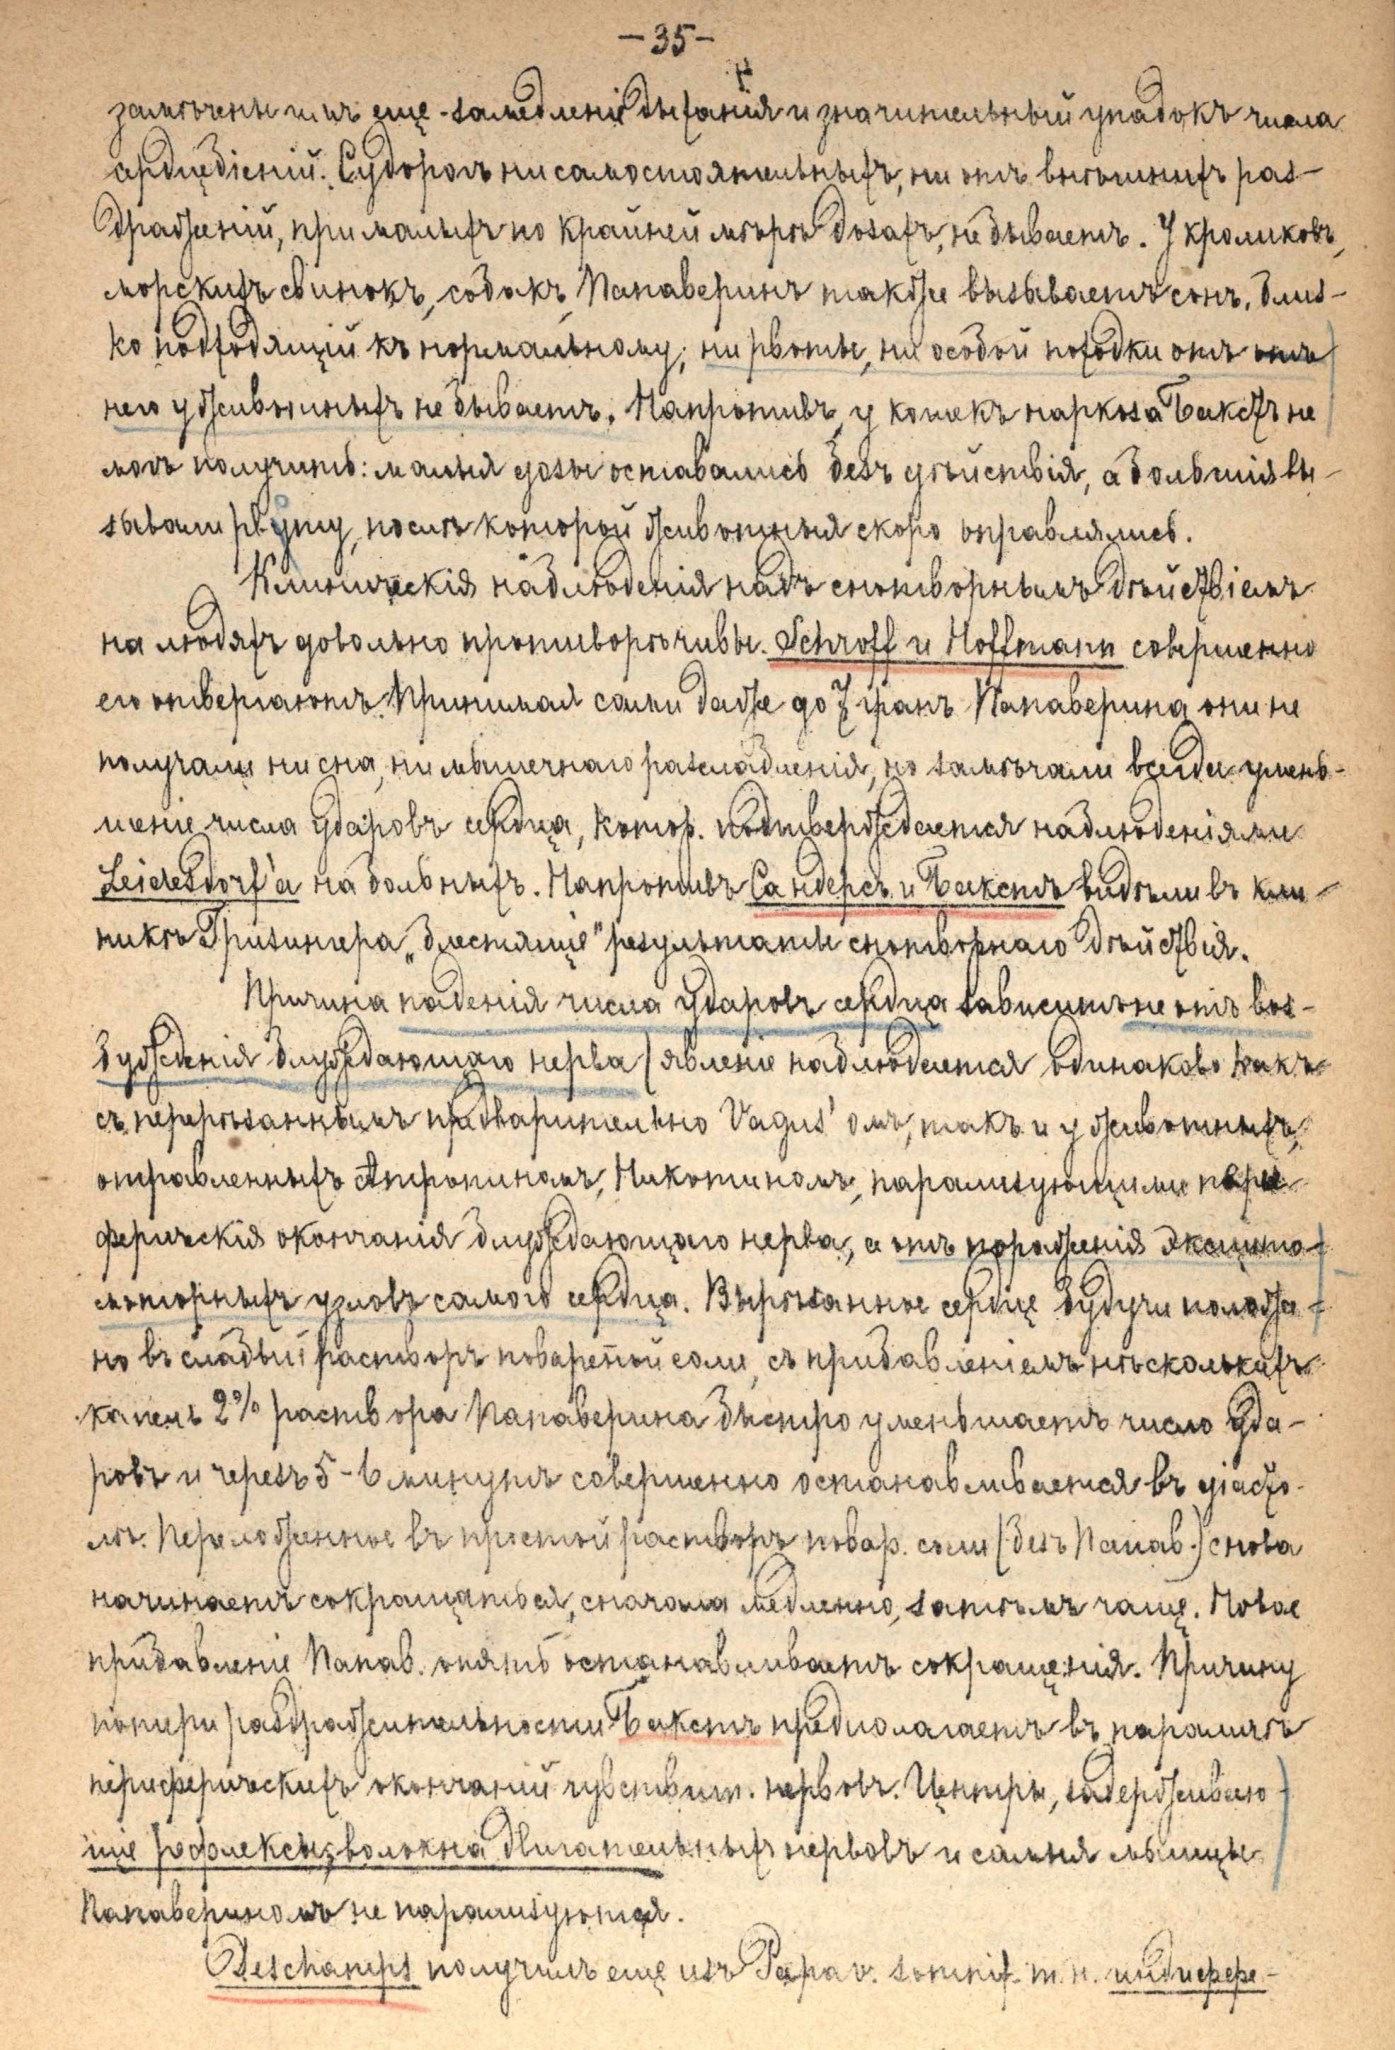 -35-
замѣчены имъ еще - замедленіе дыханія и значительный упадокъ числа
сердцебіеній. Судорогъ ни самостоятельныхъ, ни отъ внѣшнихъ раз-
драженій, при малыхъ по крайней мѣрѣ дозахъ, не бываетъ. У кроликовъ,
морскихъ свинокъ, собакъ, Папаверинъ также вызываетъ сонъ, близ-
ко подходящій къ нормальному; ни рвоты, ни особой походки отъ отъ
него у животныхъ не бываетъ. Напротивъ, у кошекъ наркоза Бакстъ не
могъ получить: малыя дозы оставались безъ дѣйствія, а большія вы-
зывали рвоту, послѣ которой животныя скоро оправлялись.
Клиническія наблюденія надъ снотворнымъ дѣйствіемъ
на людяхъ довольно противорѣчивы. Schroff и Hoffmann совершенно
его отвергаютъ. Принимая сами даже до 7 гранъ Папаверина они не
получали ни сна, ни мышечнаго разслабленія, но замѣчали всегда умень-
шеніе числа ударовъ сердца, котор. подтверждается наблюденіями
Leidesdorf'а на больныхъ. Напротивъ Сандерсъ и Бакстъ видѣли въ кли-
никѣ Гризингера „блестящіе" результаты снотворнаго дѣйствія.
Причина паденія числа ударовъ сердца зависитъ не отъ воз-
бужденія блуждающаго нерва (явленіе наблюдается одинаково какъ
съ перерѣзаннымъ предварительно Vagus'омъ, такъ и у животныхъ,
отравленныхъ Атропиномъ, Никотиномъ, парализующими пери-
ферическія окончанія блуждающаго нерва, а отъ пораженія эксцито-
моторныхъ узловъ самого сердца. Вырѣзанное сердце будучи положе-
но въ слабый растворъ поваренной соли, съ прибавленіемъ нѣсколькихъ
капель 2% раствора Папаверина быстро уменьшаетъ число уда-
ровъ и черезъ 5-6 минутъ совершенно останавливается въ діасто-
лѣ. Переложенное въ простой растворъ повар. соли (безъ Папав.) снова
начинаетъ сокращаться, сначала медленно, затѣмъ чаще. Новое
прибавленіе Папав. опять останавливаетъ сокращенія. Причину
потери раздражительности Бакстъ предполагаетъ въ параличѣ
периферическихъ окончаній чувствит. нервовъ. Центры, задерживаю-
щіе рефлексы, волокна двигательныхъ нервовъ и самыя мышцы
Папавериномъ не парализуются.
Deschamps получилъ еще изъ Papav. somnif. т. н. индиффере-